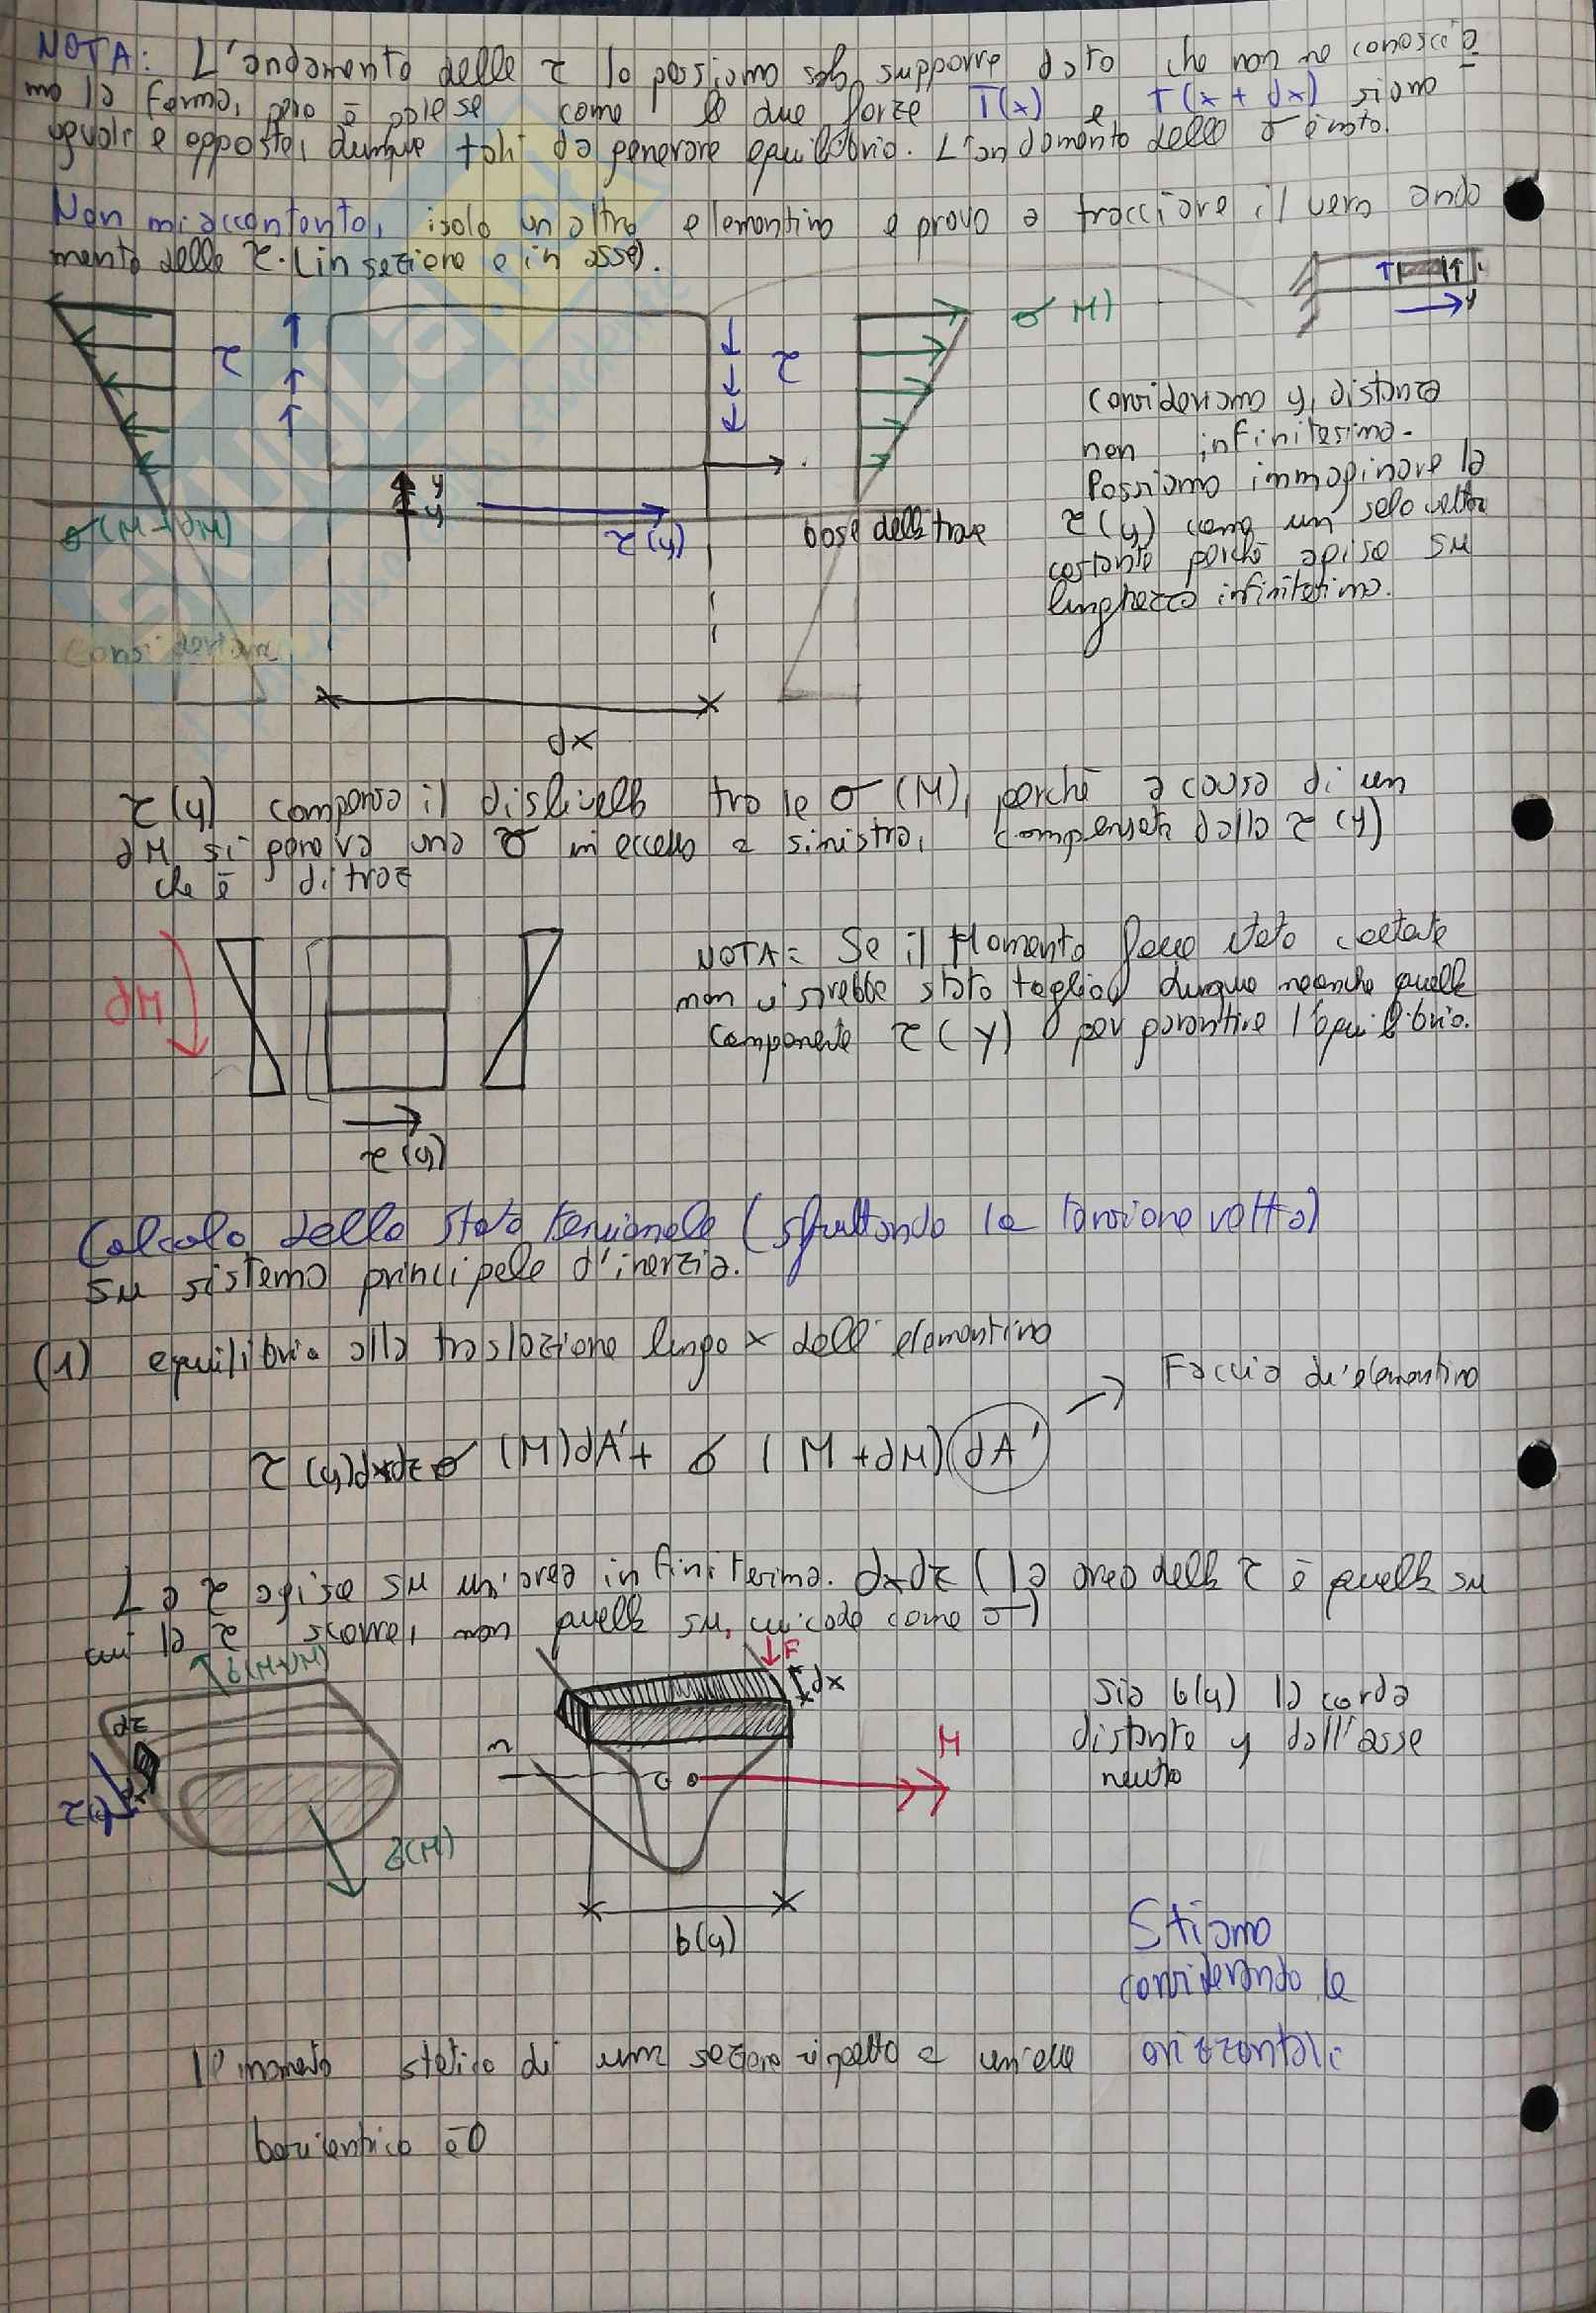 NOTA: L'andamento delle τ lo possiamo solo supporre dato che non ne conoscia
mo la forma, però è palese come le due forze T(x) e T(x + dx) siano
uguali e opposte, dunque tali da generare equilibrio. L'andamento delle σ è noto.
Non mi accontento, isolo un altro elementino e provo a tracciare il vero anda
mento delle τ. (in sezione e in asse).
τ
τ
σ(M)
y
Consideriamo y, distanza
non infinitesima.
Possiamo immaginare la
τ(y) come un solo vettore
costante perché agisce su
lunghezza infinitesima.
y
y
σ(M+dM)
τ(y)
base della trave
Consideriamo
dx
τ(y) compensa il dislivello tra le σ(M), perché a causa di un
dM si genera una σ in eccesso a sinistra, compensata dalla τ(y)
che è di traz
dM
τ(y)
NOTA: Se il Momento fosse stato costante
non vi sarebbe stato taglio, dunque neanche quella
componente τ(y) per garantire l'equilibrio.
Calcolo dello stato tensionale (sfruttando la tensione retta)
su sistema principale d'inerzia.
(1) equilibrio alla traslazione lungo x dell'elementino
Faccia di elementino
τ(y)dxdz σ(M)dA' + σ(M+dM)dA'
La τ agisce su un'area infinitesima. dxdz (la area della τ è quella su
cui la τ scorre, non quella su cui cade come σ)
σ(M+dM)
dz
τ(y)
σ(M)
F
dx
n
G
M
b(y)
Sia b(y) la corda
distante y dall'asse
neutro
Stiamo
considerando le
orizzontali
Il momento statico di una sezione rispetto a un'asse
baricentrico è 0